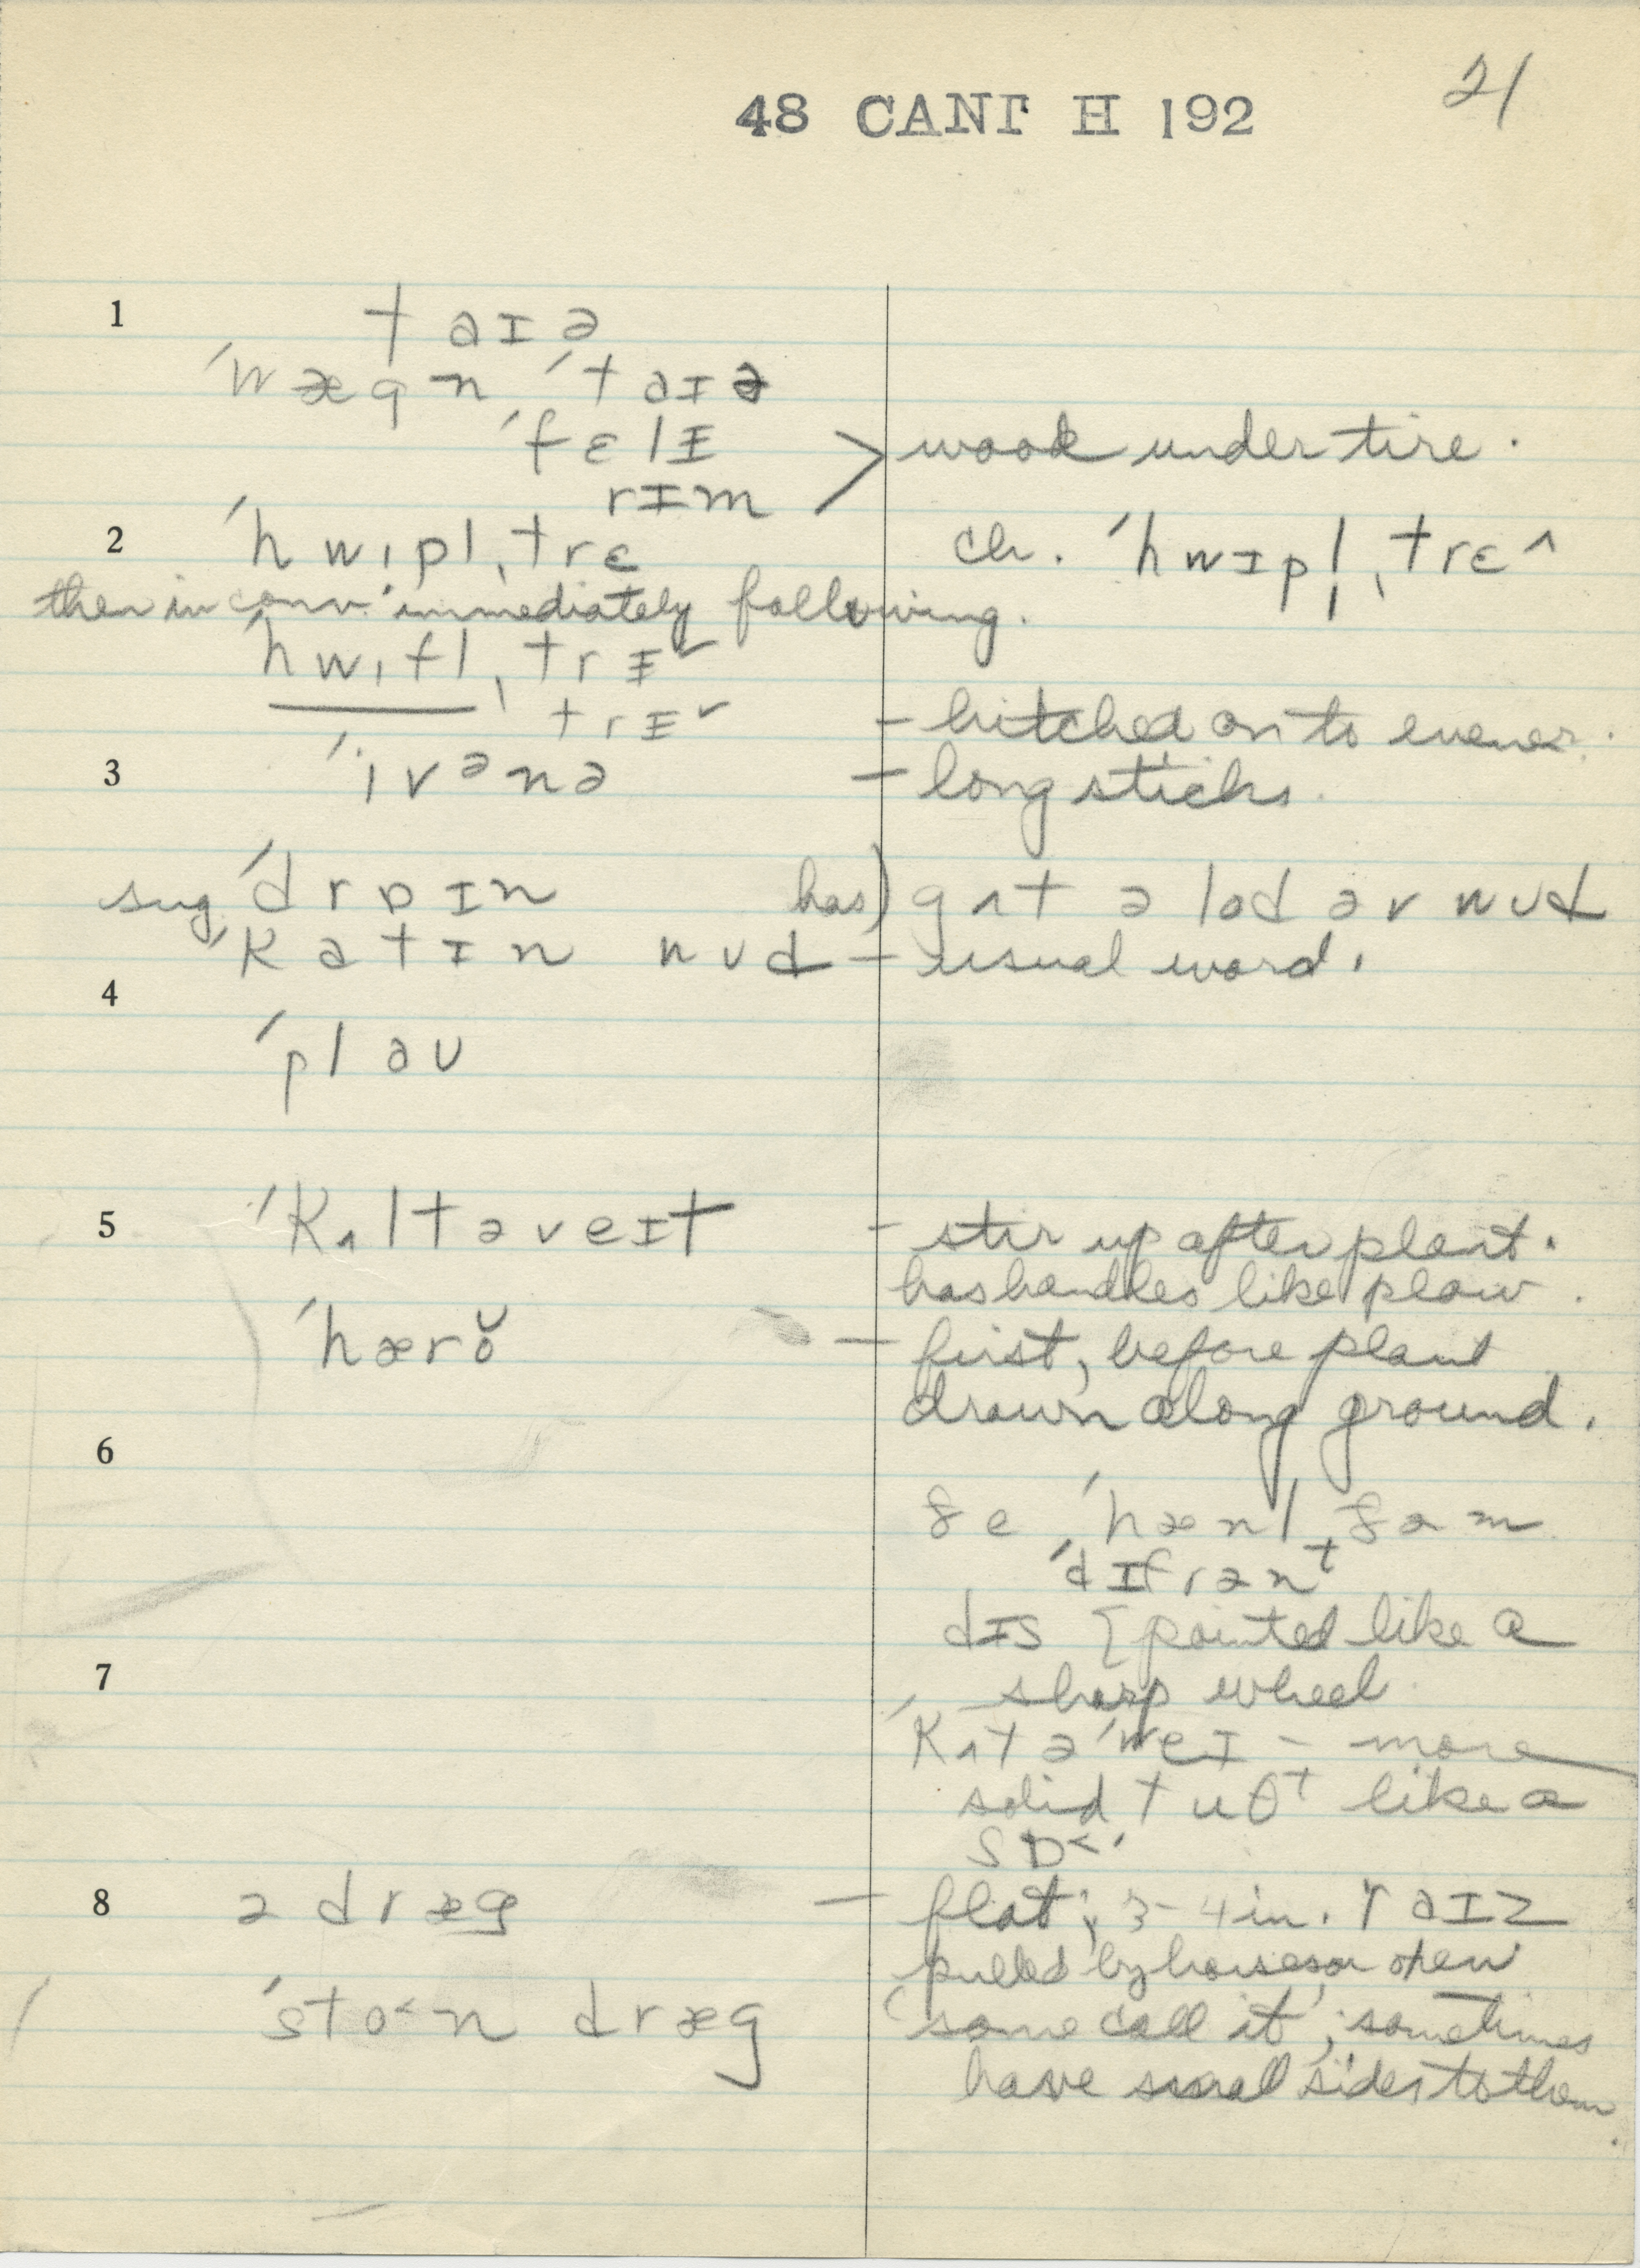 48 CANT H 192 21
1 taɪə
ˈwægn ˈtaɪə
ˈfɛlɪ > wood under tire.
rɪm
2 ˈhwɪpl̩ˌtrɛ ch. ˈhwɪpl̩ˌtrɛ^
then in conv. immediately following.
ˈhwɪflˌtrɪˇ
trɪˇ - hitched on to evener.
3 ˈivᵊnə - long sticks.
sug. ˈdrɒɪn has) gʌt ə lod əv wʊd
ˈkatɪn wʊd - usual word.
4
ˈplaʊ
5 ˈkʌltəveɪt - stir up after plant.
has handles like plow.
ˈhærŏ - first, before plant
drawn along ground.
6
ˈdɪfrənᵗ
dɪs [pointed like a
7 sharp wheel.
ˈkʌtəˈweɪ - more
solid tuθᵗ like a
sɒ<.
8 ə dræg - flat; 3-4 in. raɪz
pulled by horses or oxen
ˈsto<n dræg (some call it; sometimes
have small sides to them.